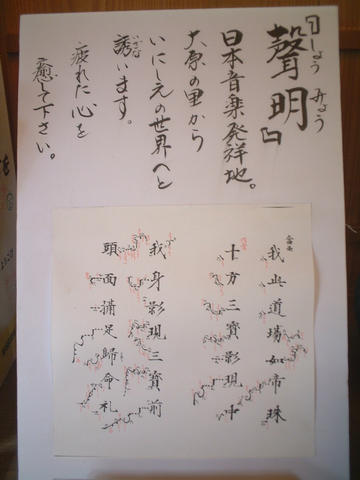 『聲明』
しょう みょう
日本音楽発祥地。
大原の里から
いにしえの世界へと
誘います。
いざな
疲れた心を
癒して下さい。
我此道場如帝珠
十方三寶影現中
我身影現三寶前
頭面攝足歸命礼